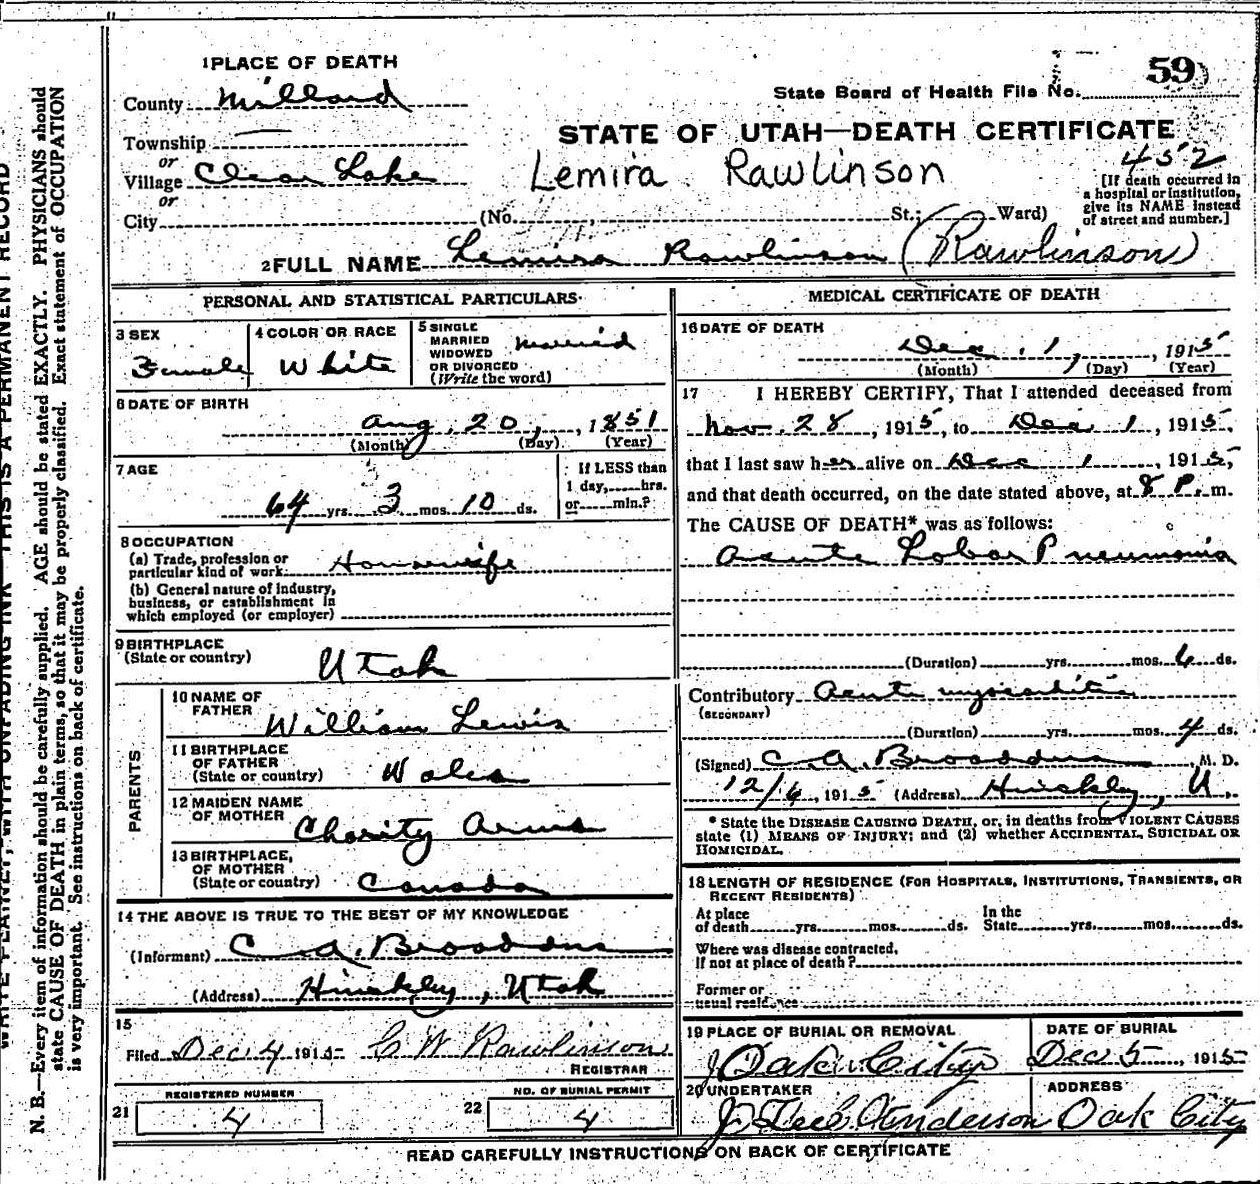 1 PLACE OF DEATH
59
County Millard
State Board of Health File No.
Township
STATE OF UTAH—DEATH CERTIFICATE
or
Village Clear Lake
Lemira Rawlinson
452
or
City (No. , St.; Ward)
[If death occurred in
a hospital or institution,
give its NAME instead
of street and number.]
2 FULL NAME Lemira Rawlinson (Rawlinson)
PERSONAL AND STATISTICAL PARTICULARS
3 SEX
Female
4 COLOR OR RACE
White
5 SINGLE
MARRIED
WIDOWED
OR DIVORCED
(Write the word)
Married
6 DATE OF BIRTH
Aug. 20, 1851
(Month) (Day) (Year)
7 AGE
64 yrs. 3 mos. 10 ds.
If LESS than
1 day, hrs.
or min.?
8 OCCUPATION
(a) Trade, profession or
particular kind of work Housewife
(b) General nature of industry,
business, or establishment in
which employed (or employer)
9 BIRTHPLACE
(State or country)
Utah
PARENTS
10 NAME OF
FATHER
William Lewis
11 BIRTHPLACE
OF FATHER
(State or country)
Wales
12 MAIDEN NAME
OF MOTHER
Charity Arms
13 BIRTHPLACE,
OF MOTHER
(State or country)
Canada
14 THE ABOVE IS TRUE TO THE BEST OF MY KNOWLEDGE
(Informant) C. A. Broaddus
(Address) Hinckley, Utah
15
Filed Dec 4 1915 C W Rawlinson
REGISTRAR
REGISTERED NUMBER
21 4
NO. OF BURIAL PERMIT
22 4
MEDICAL CERTIFICATE OF DEATH
16 DATE OF DEATH
Dec. 1, , 1915
(Month) (Day) (Year)
17 I HEREBY CERTIFY, That I attended deceased from
Nov. 28, 1915, to Dec. 1, 1915,
that I last saw her alive on Dec 1, 1915,
and that death occurred, on the date stated above, at 8 P. m.
The CAUSE OF DEATH* was as follows:
Acute Lobar Pneumonia
(Duration) yrs. mos. 6 ds.
Contributory Acute myocarditis
(SECONDARY)
(Duration) yrs. mos. 4 ds.
(Signed) C. A. Broaddus, M. D.
12/4, 1915 (Address) Hinckley, U.
* State the DISEASE CAUSING DEATH, or, in deaths from VIOLENT CAUSES
state (1) MEANS OF INJURY; and (2) whether ACCIDENTAL, SUICIDAL OR
HOMICIDAL.
18 LENGTH OF RESIDENCE (FOR HOSPITALS, INSTITUTIONS, TRANSIENTS, OR
RECENT RESIDENTS)
At place
of death yrs. mos. ds.
In the
State yrs. mos. ds.
Where was disease contracted,
If not at place of death?
Former or
usual residence
19 PLACE OF BURIAL OR REMOVAL
Oak City
DATE OF BURIAL
Dec 5, 1915
20 UNDERTAKER
J Lee Anderson
ADDRESS
Oak City
READ CAREFULLY INSTRUCTIONS ON BACK OF CERTIFICATE
WRITE PLAINLY, WITH UNFADING INK—THIS IS A PERMANENT RECORD
N. B.—Every item of information should be carefully supplied. AGE should be stated EXACTLY. PHYSICIANS should
state CAUSE OF DEATH in plain terms, so that it may be properly classified. Exact statement of OCCUPATION
is very important. See instructions on back of certificate.